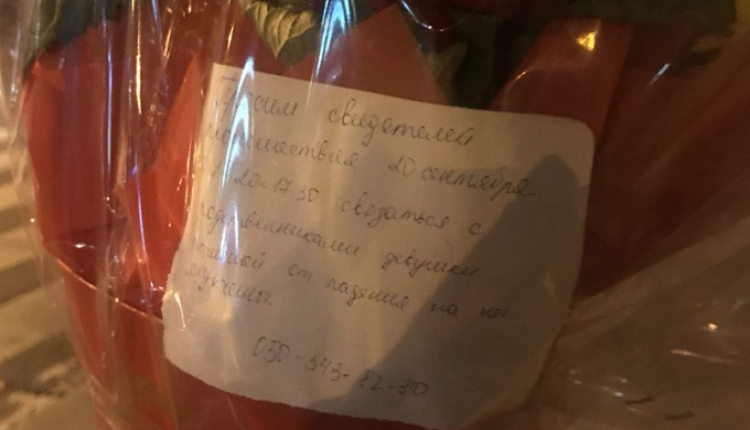 Просим свидетелей
происшествия 20 сентября
20-1730 связаться с
родственниками девушки
от падения на нее
мужчины.
050-343-82-80